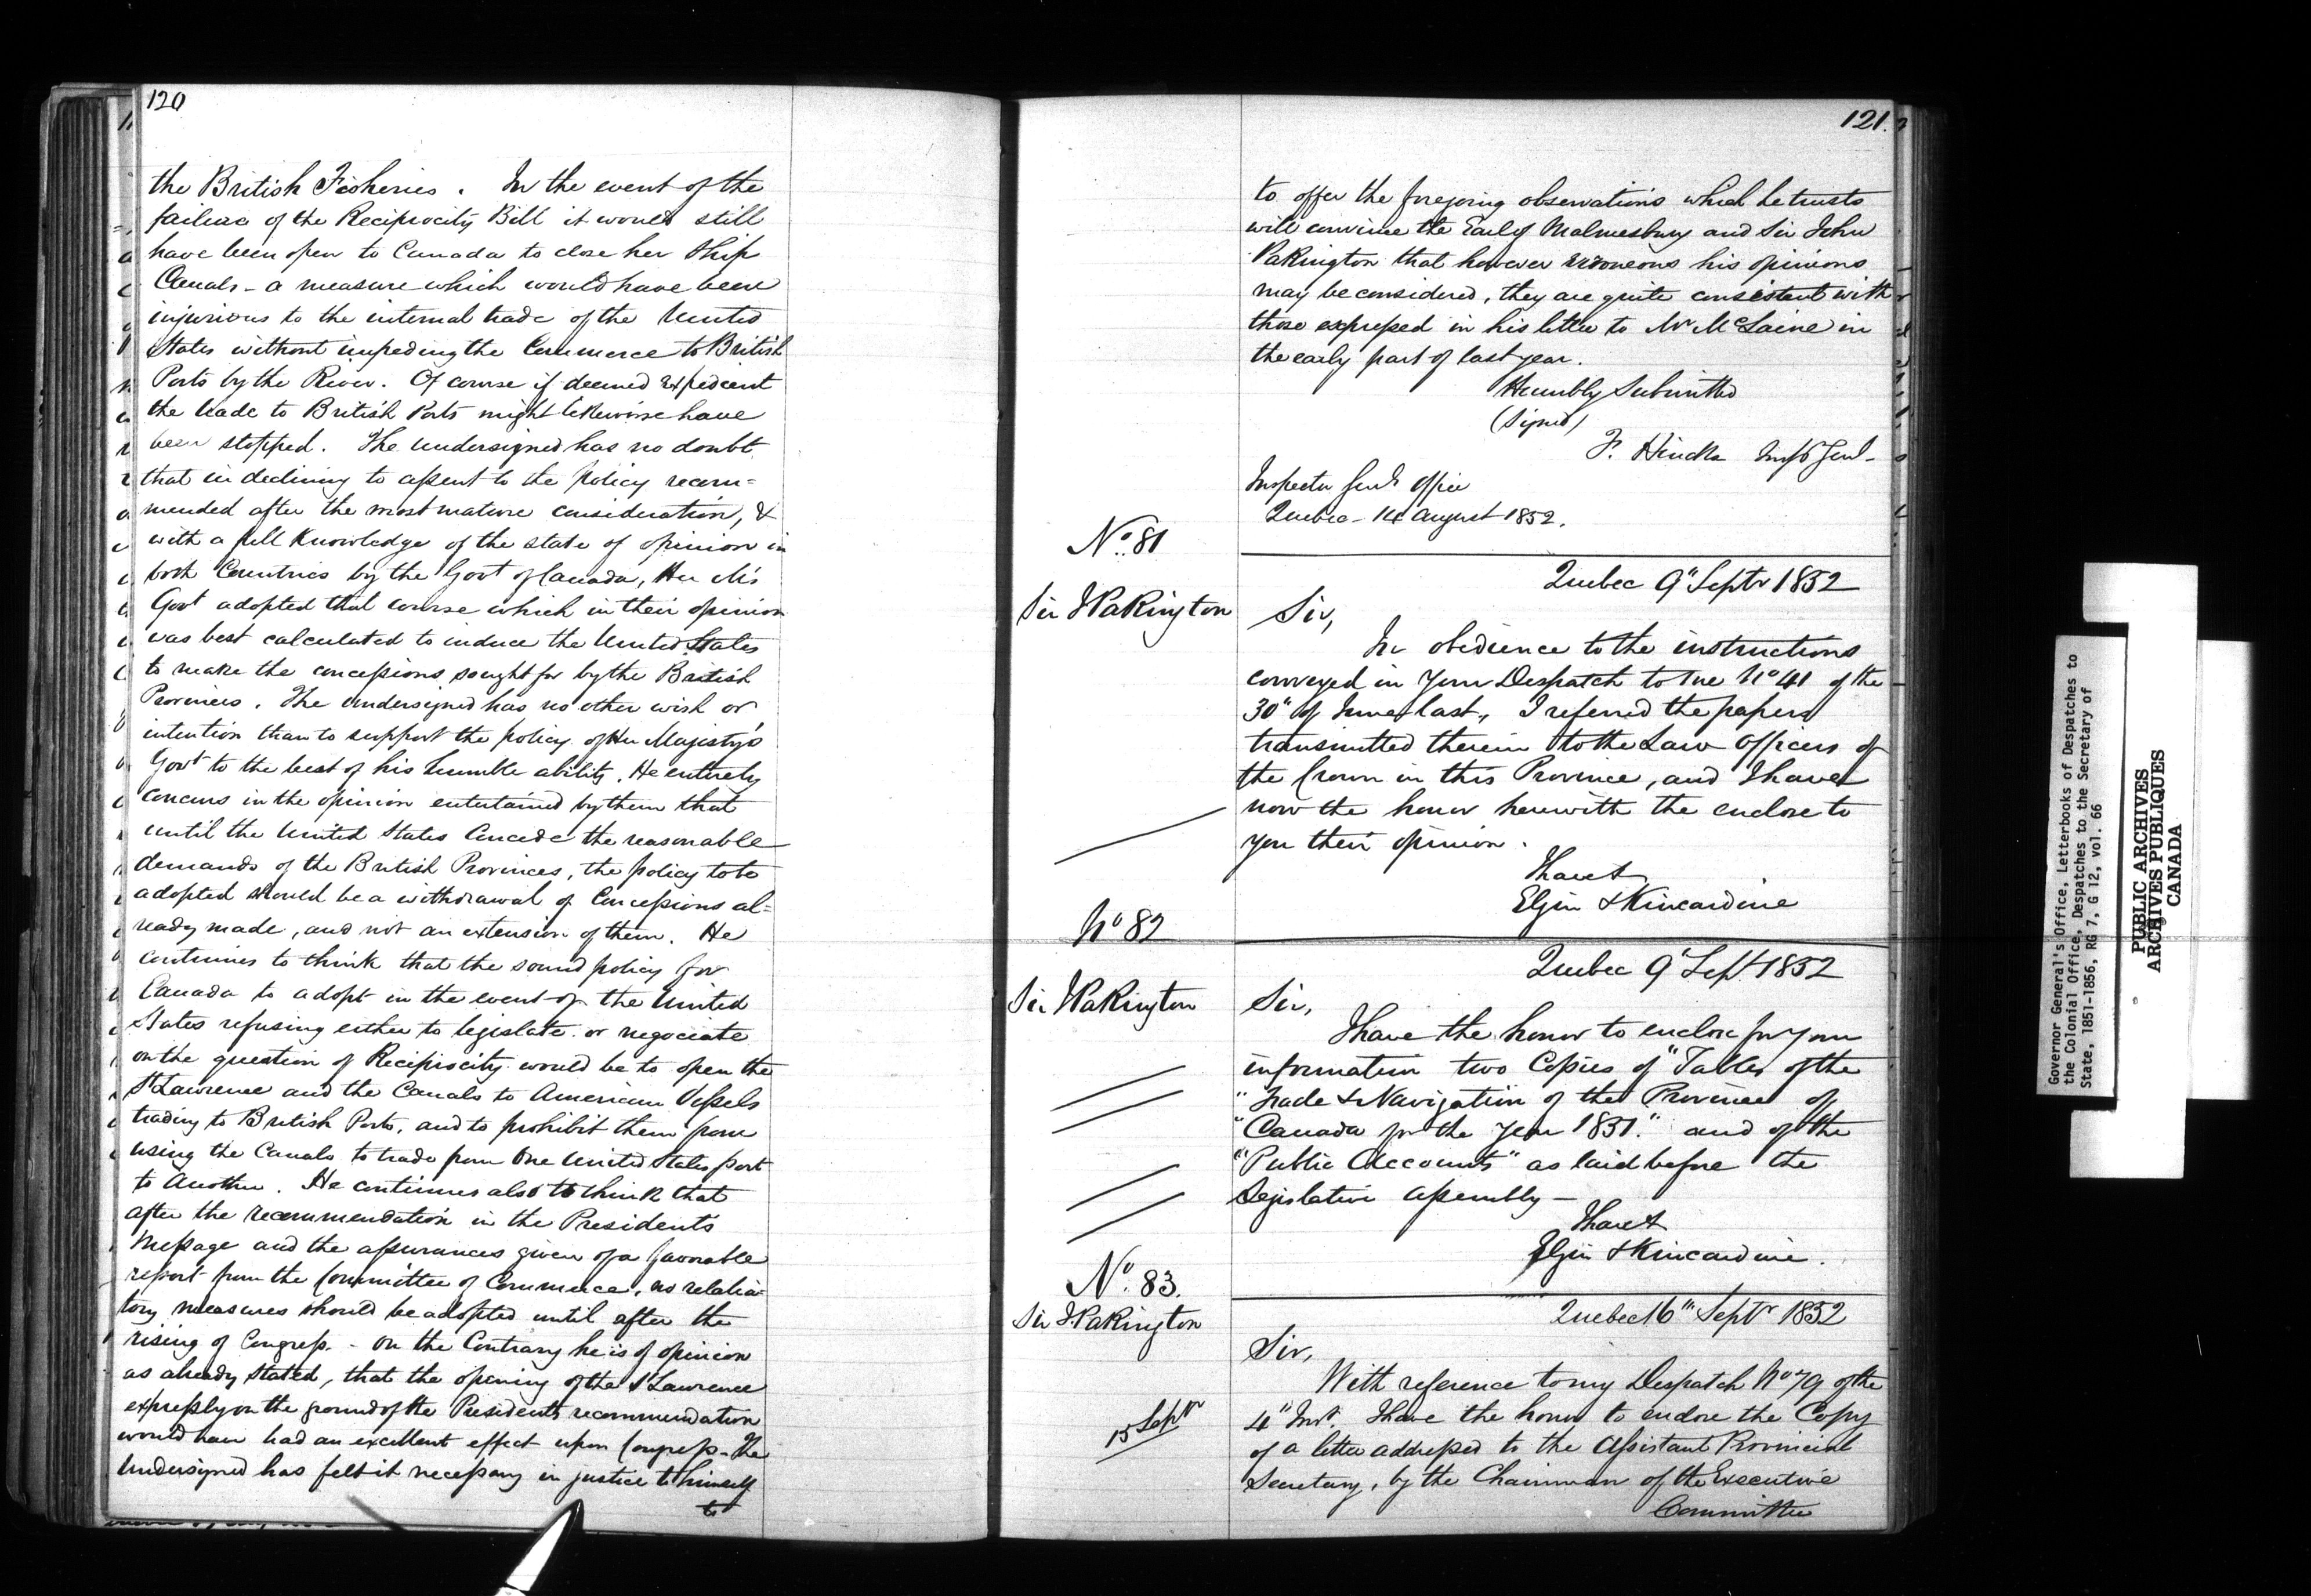 120
the British Fisheries. In the event of the
failure of the Reciprocity Bill it would still
have been open to Canada to close her Ship
Canals - a measure which would have been
injurious to the internal trade of the United
States without impeding the Commerce to British
Ports by the River. Of course if deemed expedient
the trade to British Ports might likewise have
been stopped. The undersigned has no doubt
that in declining to assent to the policy recom=
mended after the most mature consideration, &
with a full Knowledge of the state of opinion in
both Countries by the Govt of Canada, Her M's
Govt adopted that course which in their opinion
was best calculated to induce the United States
to make the concessions sought for by the British
Provinces. The undersigned has no other wish or
intention than to support the policy of Her Majesty's
Govt to the best of his humble ability. He entirely
concurs in the opinion entertained by them that
until the United States Concede the reasonable
demands of the British Provinces, the policy to be
adopted should be a withdrawal of Concessions al=
ready made, and not an extension of them. He
continues to think that the sound policy for
Canada to adopt in the event of the United
States refusing either to legislate or negociate
on the question of Reciprocity would be to open the
St Lawrence and the Canals to American Vessels
trading to British Ports, and to prohibit them from
using the Canals to trade from One United States port
to Another. He continues also to think that
after the recommendation in the President's
Message and the assurances given of a favorable
report from the Committee of Commerce, no retalia=
tory measures should be adopted until after the
rising of Congress. - On the Contrary he is of opinion
as already stated, that the opening of the St Lawrence
expressly on the ground of the President's recommendation
would have had an excellent effect upon Congress - The
Undersigned has felt it necessary in justice to himself
to
121.
to offer the foregoing observations which he trusts
will convince the Earl of Malmesbury and Sir John
Pakington that however erroneous his opinions
may be considered, they are quite consistent with
those expressed in his letter to Mr McLaine in
the early part of last year.
Humbly Submitted
(Signed)
F. Hincks Insp Genl -
Inspector Genls Office
Quebec - 14 August 1852.
No. 81
Quebec 9" Septr 1852
Sir J Pakington
Sir,
In obedience to the instructions
conveyed in Your Despatch to me No 41 of the
30" of June last, I referred the papers
transmitted therein to the Law Officers of
the Crown in this Province, and I have
now the honor herewith the enclose to
you their opinion.
I have &
Elgin & Kincardine
No 82
Quebec 9" Sept. 1852
Sir J Pakington
Sir,
I have the honor to enclose for your
information two Copies of "Tables of the
"Trade & Navigation of the Province of
"Canada for the year 1851." and of the
"Public Accounts" as laid before the
Legislative Assembly -
I have &
Elgin & Kincardine.
No. 83.
Quebec 16th Septr 1852
Sir J. Pakington
Sir,
With reference to my Despatch No 79 of the
15 Septr
4" Inst. I have the honor to enclose the Copy
of a letter addressed to the Assistant Provincial
Secretary, by the Chairman of the Executive
Committee
Governor General's Office, Letterbooks of Despatches to
the Colonial Office, Despatches to the Secretary of
State, 1851-1856, RG 7, G 12, vol. 66
PUBLIC ARCHIVES
ARCHIVES PUBLIQUES
CANADA